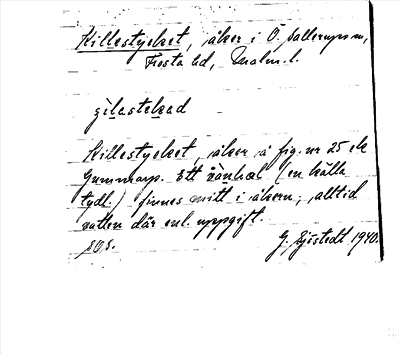 Killestycket, åker i Ö. Sallerups sn,
Frosta hd, Malm. l.
Killestycket, åker å fig. nr 25 ek
Gummarp. Ett vånhæl (en källa
tydl.) finnes mitt i åkern; alltid
vatten där enl. uppgift.
G. Sjöstedt 1940.